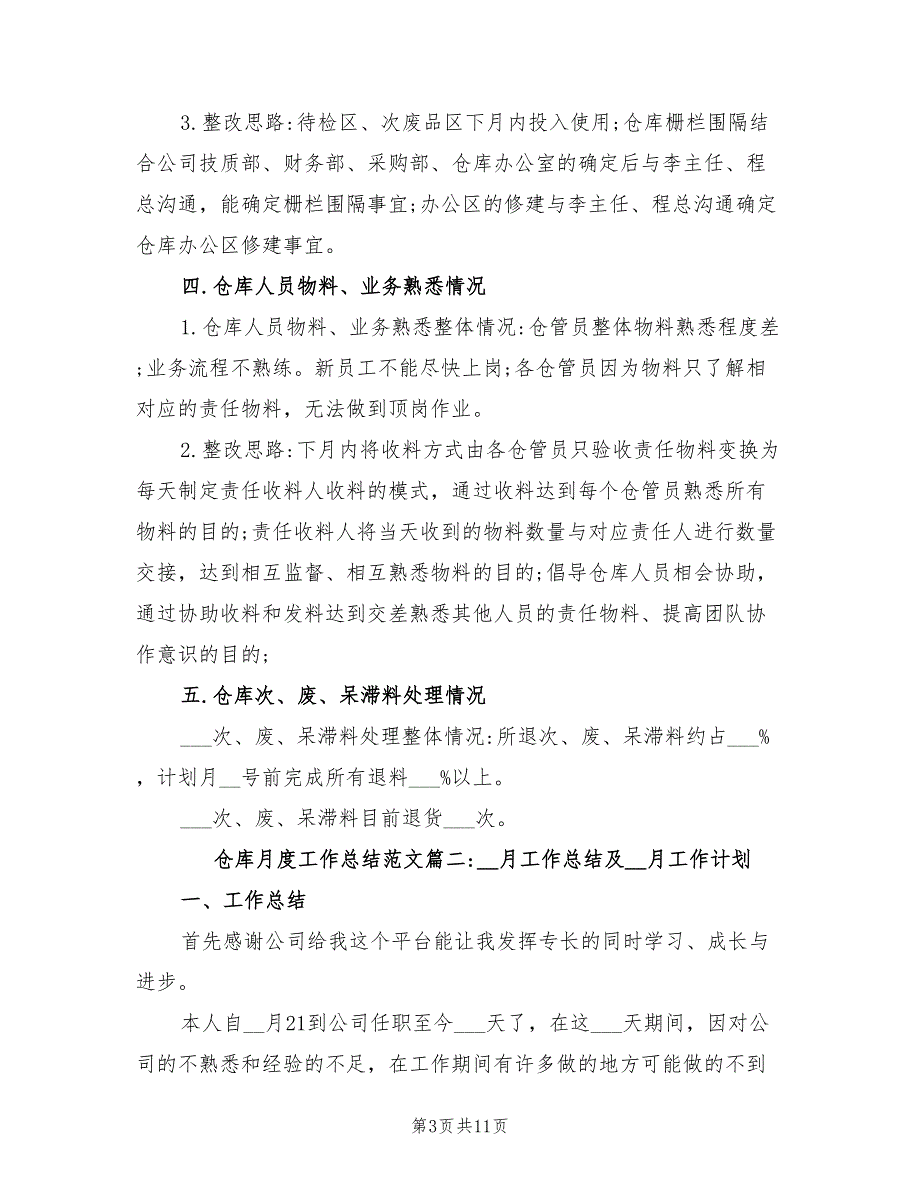 3.整改思路:待检区、次废品区下月内投入使用;仓库栅栏围隔结
合公司技质部、财务部、采购部、仓库办公室的确定后与李主任、程
总沟通，能确定栅栏围隔事宜;办公区的修建与李主任、程总沟通确定
仓库办公区修建事宜。
四.仓库人员物料、业务熟悉情况
1.仓库人员物料、业务熟悉整体情况:仓管员整体物料熟悉程度差
;业务流程不熟练。新员工不能尽快上岗;各仓管员因为物料只了解相
对应的责任物料，无法做到顶岗作业。
2.整改思路:下月内将收料方式由各仓管员只验收责任物料变换为
每天制定责任收料人收料的模式，通过收料达到每个仓管员熟悉所有
物料的目的;责任收料人将当天收到的物料数量与对应责任人进行数量
交接，达到相互监督、相互熟悉物料的目的;倡导仓库人员相会协助，
通过协助收料和发料达到交差熟悉其他人员的责任物料、提高团队协
作意识的目的;
五.仓库次、废、呆滞料处理情况
___次、废、呆滞料处理整体情况:所退次、废、呆滞料约占___%
，计划月__号前完成所有退料___%以上。
___次、废、呆滞料目前退货___次。
仓库月度工作总结范文篇二:__月工作总结及__月工作计划
一、工作总结
首先感谢公司给我这个平台能让我发挥专长的同时学习、成长与
进步。
本人自__月21到公司任职至今___天了，在这___天期间，因对公
司的不熟悉和经验的不足，在工作期间有许多做的地方可能做的不到
第3页共11页